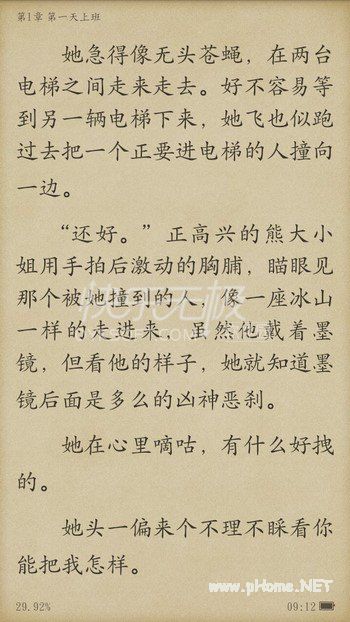 第1章 第一天上班
她急得像无头苍蝇，在两台
电梯之间走来走去。好不容易等
到另一辆电梯下来，她飞也似跑
过去把一个正要进电梯的人撞向
一边。
“还好。”正高兴的熊大小
姐用手拍后激动的胸脯，瞄眼见
那个被她撞到的人，像一座冰山
一样的走进来，虽然他戴着墨
镜，但看他的样子，她就知道墨
镜后面是多么的凶神恶刹。
她在心里嘀咕，有什么好拽
的。
她头一偏来个不理不睬看你
能把我怎样。
www.pHome.NET
29.92% 09:12